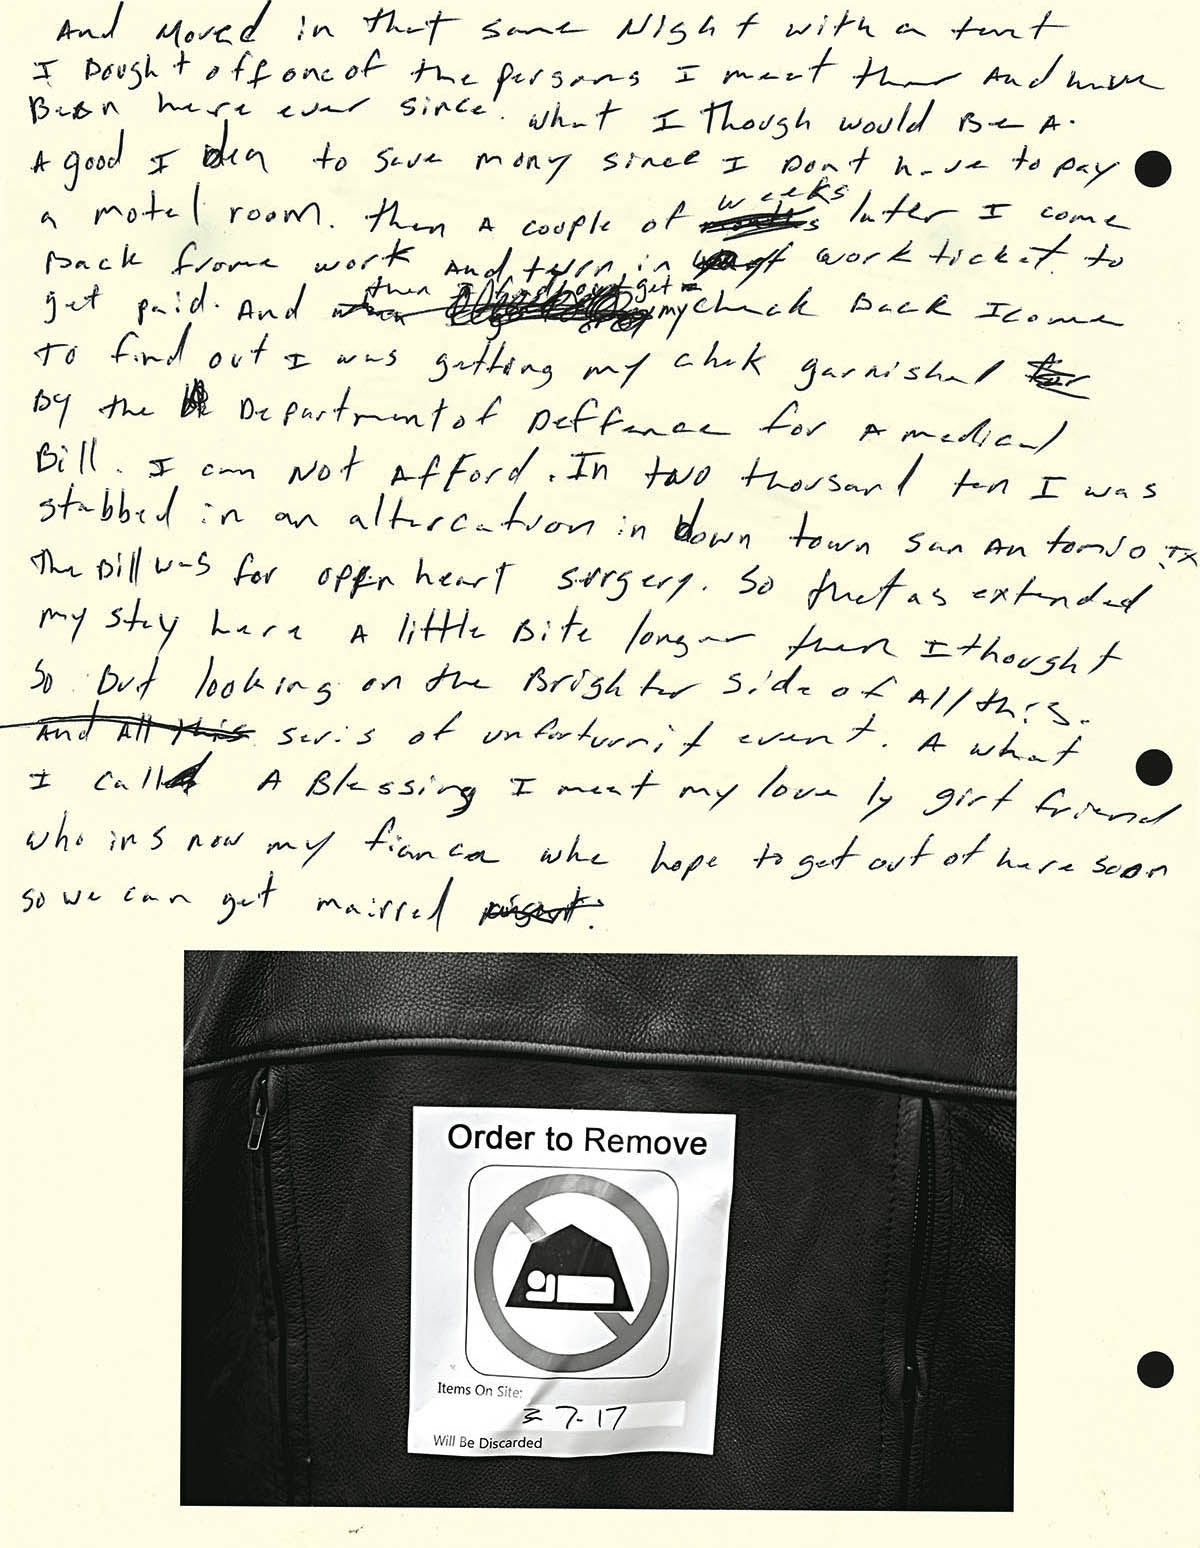 And Moved in that same Night with a tent
I Bought off one of the persons I meet ther And have
Been here ever since. what I though would Be A.
A good I dea to save mony since I Dont have to pay
a motel room. then A couple of weeks later I come
Back frome work And turn in work ticket to
get paid. And then I get my check Back I come
To find out I was getting my chek garnishd
By the Department of Deffence for A medical
Bill. I can Not Afford. In two thousand ten I was
stabbed in an altercatuon in down town San Antonio TX
The Bill was for open heart surgery. So that as extended
my stay here A little Bite longer then I thought
So. But looking on the Brighter side of All this.
And All this seris of unforturnit event. A what
I call A Blessing I meet my love ly girl friend
who ins now my fianca whe hope to get out of here soon
so we can get mairred
Order to Remove
Items On Site:
3-7-17
Will Be Discarded